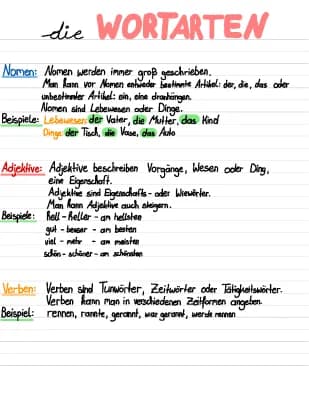 die WORTARTEN
Nomen: Nomen werden immer groß geschrieben.
Man kann vor Nomen entweder bestimmte Artikel: der, die, das oder
unbestimmter Artikel: ein, eine dranhängen.
Nomen sind Lebewesen oder Dinge.
Beispiele: Lebewesen: der Vater, die Mutter, das Kind
Dinge: der Tisch, die Vase, das Auto
Adjektive: Adjektive beschreiben Vorgänge, Wesen oder Ding,
eine Eigenschaft.
Adjektive sind Eigenschafts- oder Wiewörter.
Man kann Adjektive auch steigern.
Beispiele: hell - heller - am hellsten
gut - besser - am besten
viel - mehr - am meisten
schön - schöner - am schönsten
Verben: Verben sind Tunwörter, Zeitwörter oder Tätigkeitswörter.
Verben kann man in verschiedenen Zeitformen angeben.
Beispiel: rennen, rannte, gerannt, war gerannt, werde rennen